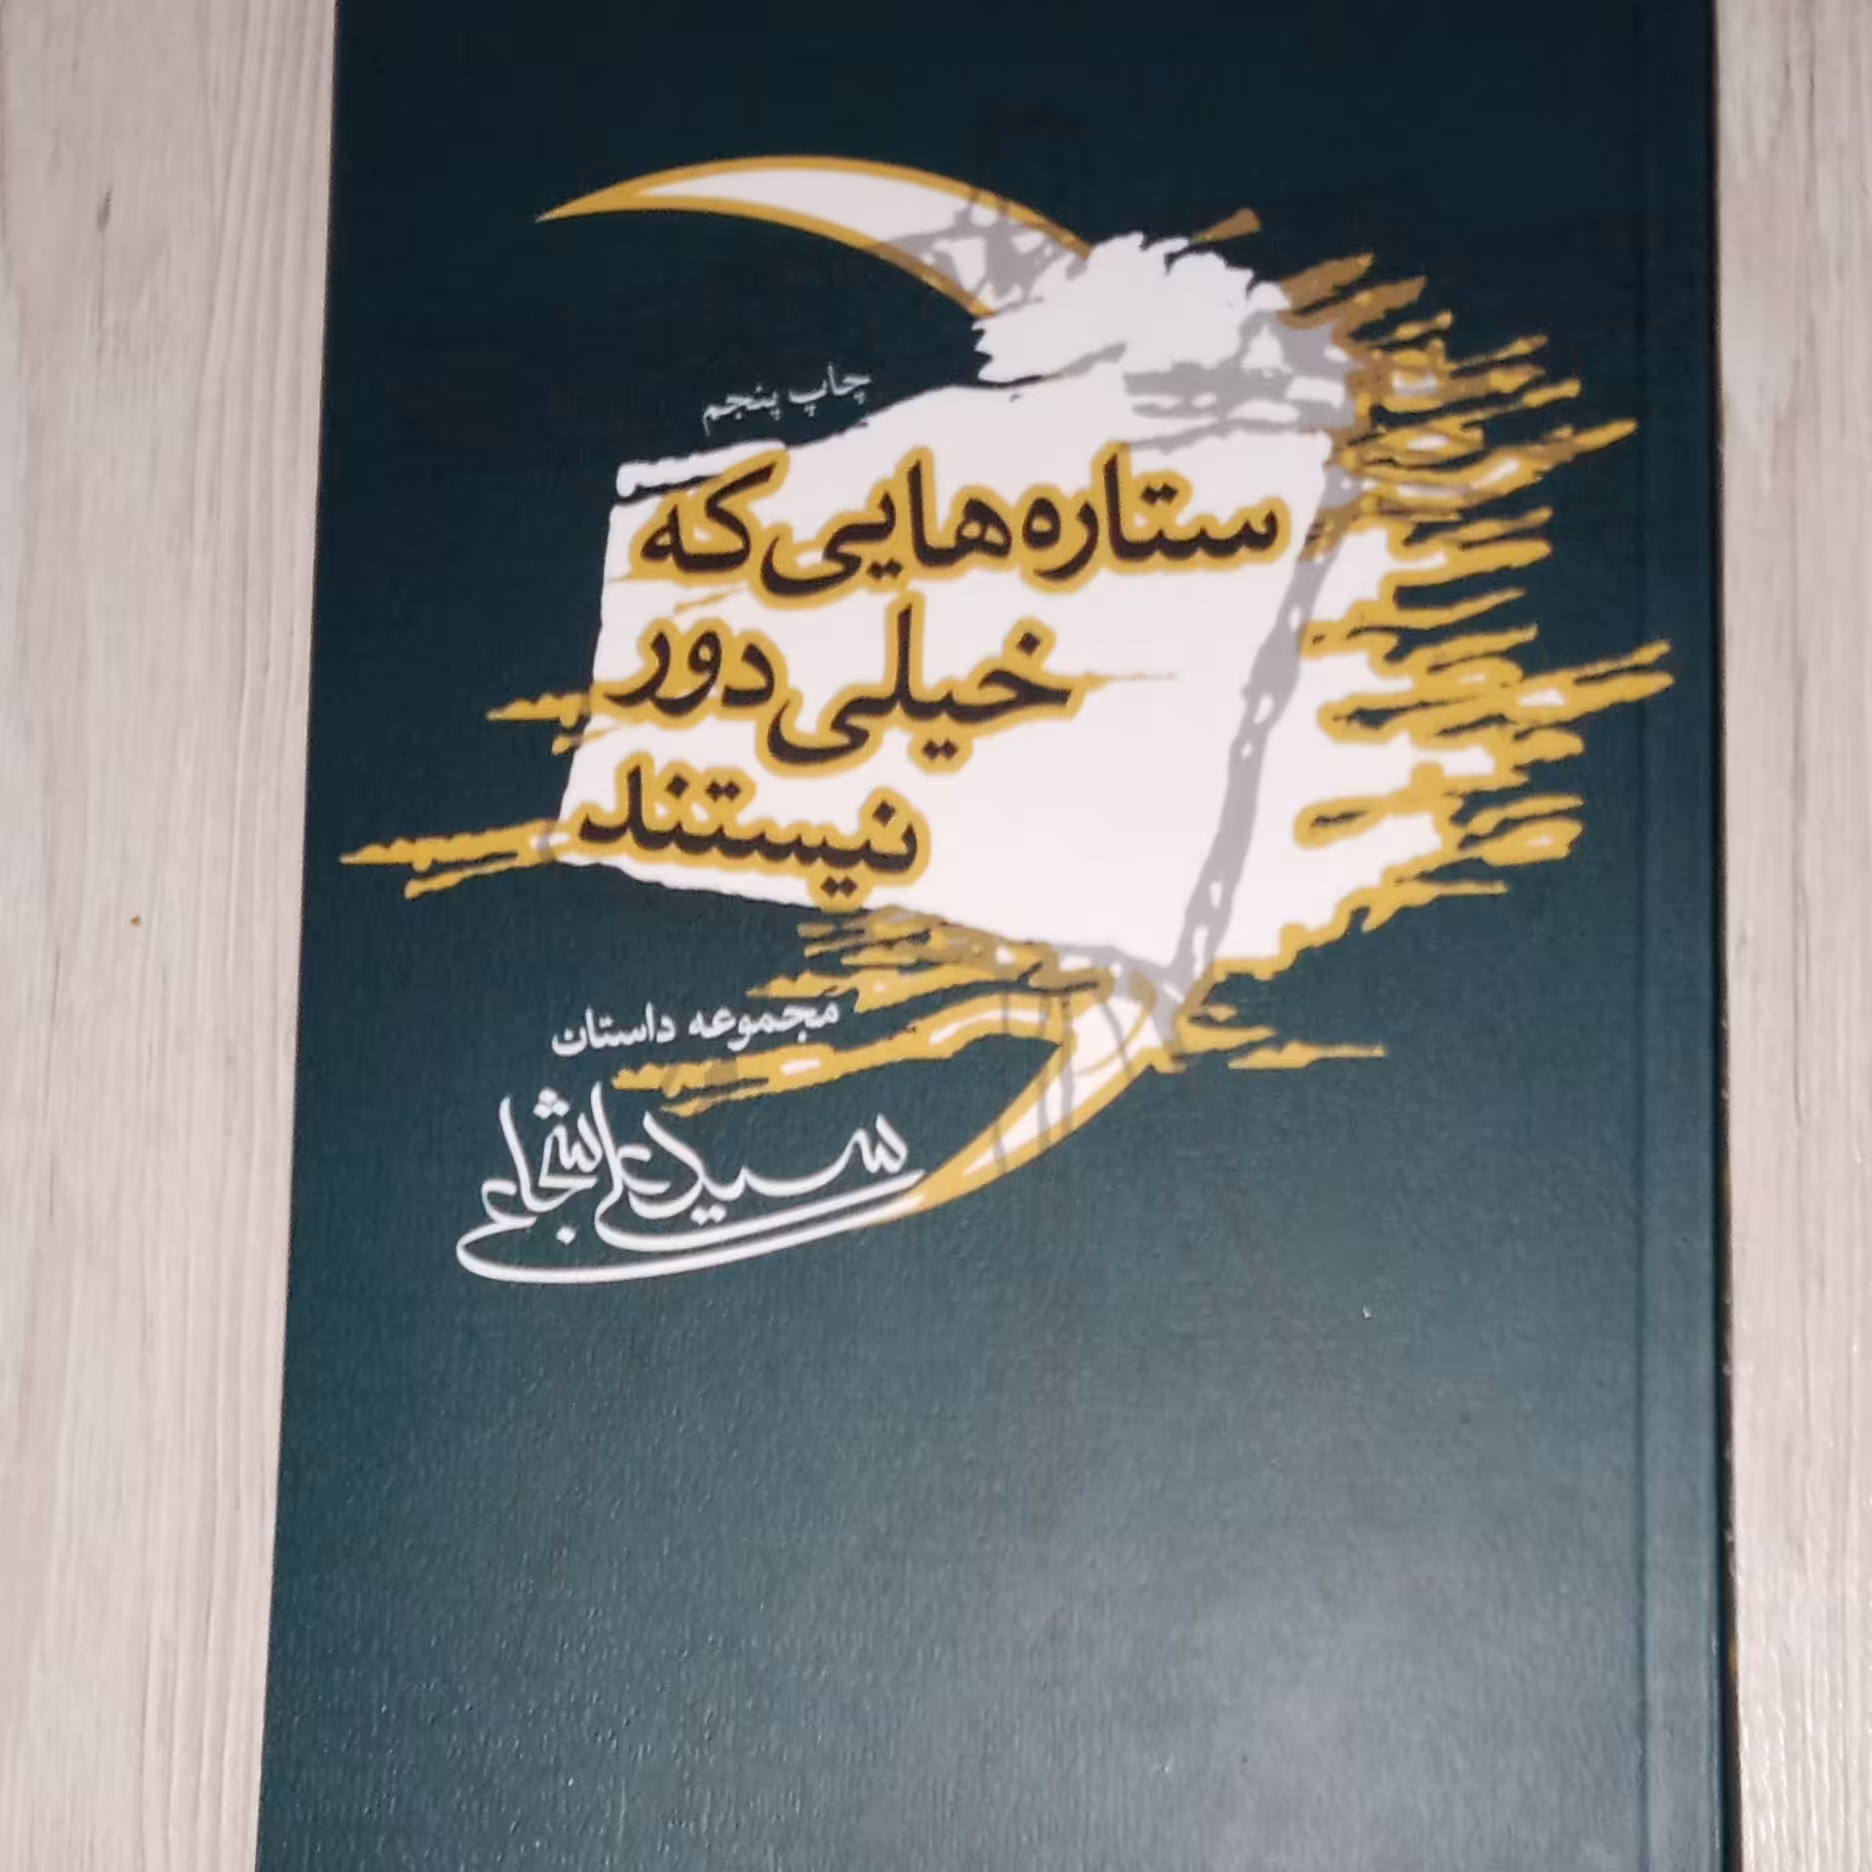 چاپ پنجم
ستاره‌هایی که
خیلی دور
نیستند
مجموعه داستان
سید علی شجاعی